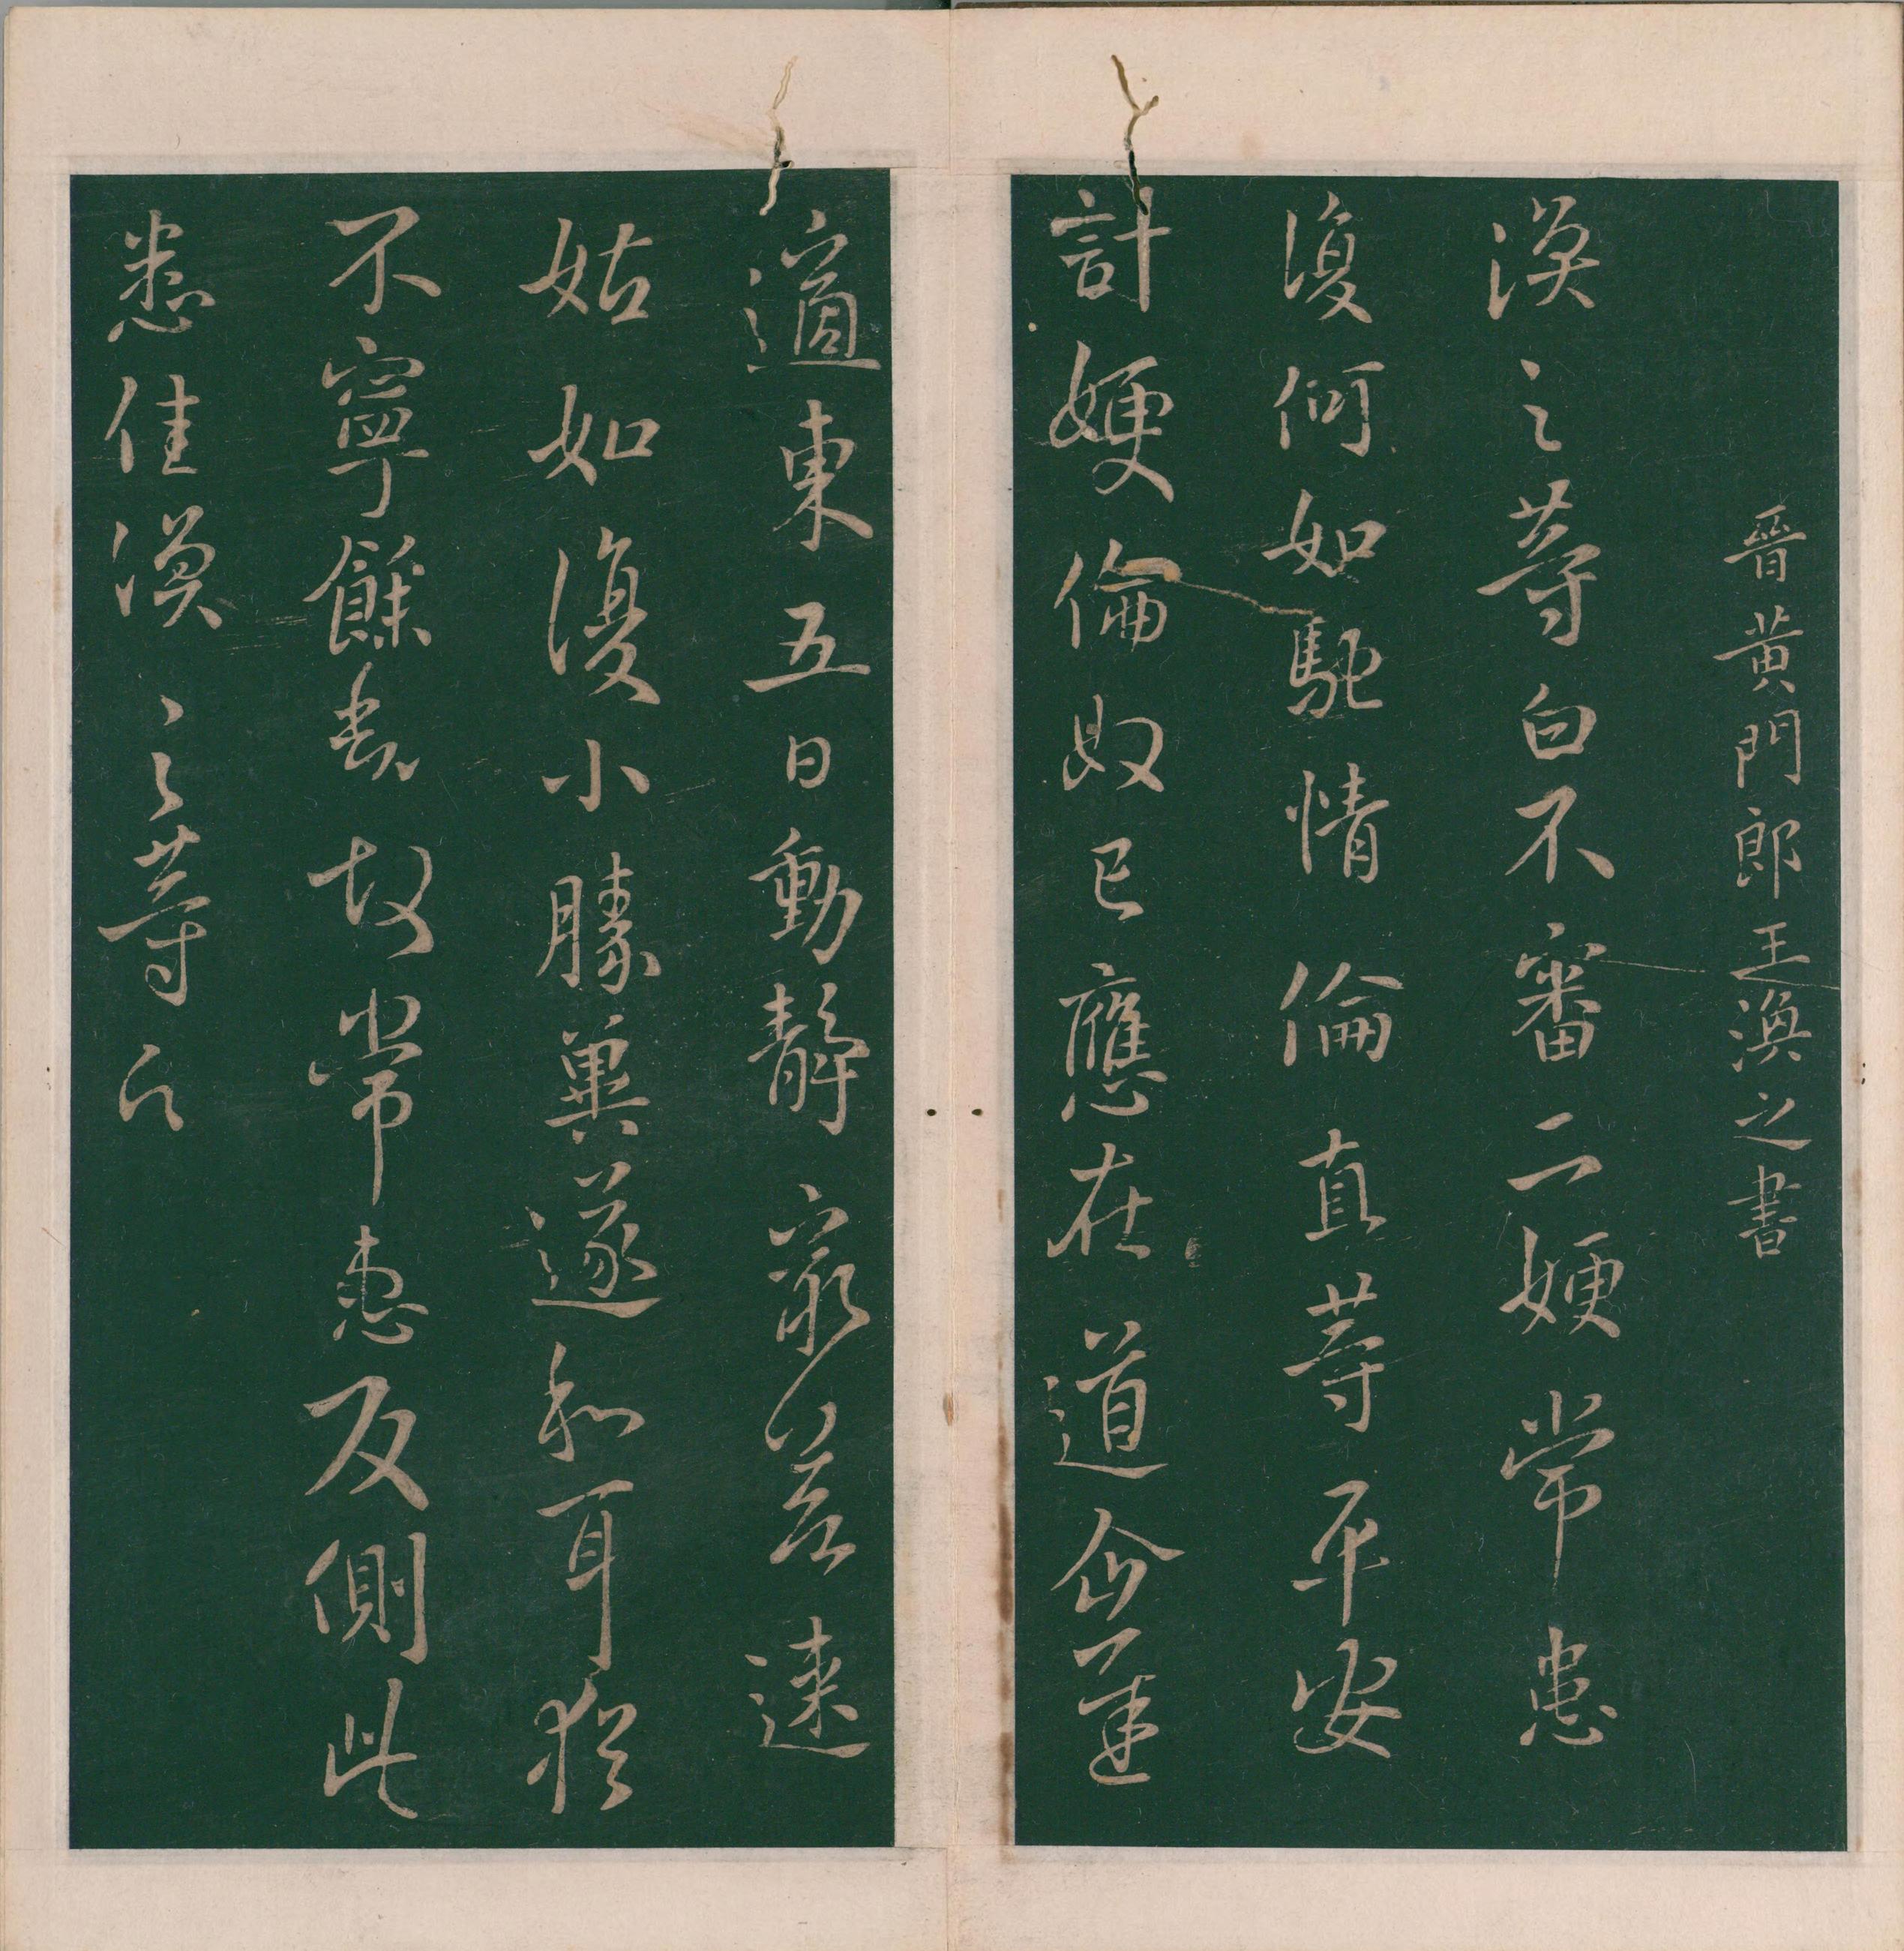 晉黃門郎王渙之書
渙之等白不審二嫂常患
復何如馳情倫直等平安
計嫂倫奴已應在道企遲
適東五日動靜㝡速
姑如復小勝冀遂和耳猶
不寧餘悉故常患反側此
悉佳渙之等白